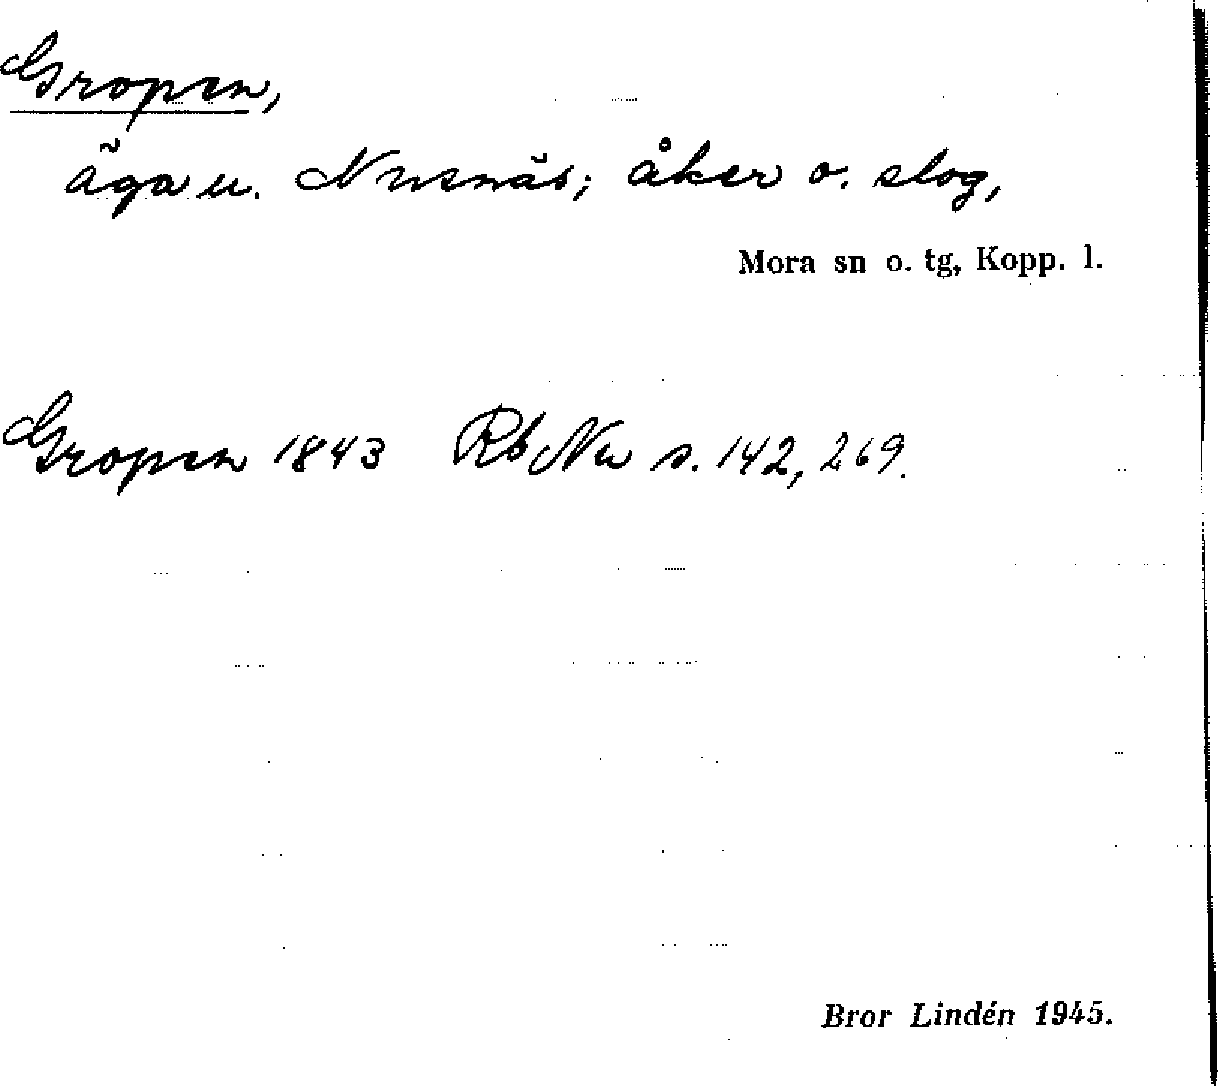 Gropen,
äga u. Nusnäs; åker o. slog,
Mora sn o. tg, Kopp. l.
Gropen 1843 Rb Nu s. 142, 269.
Bror Lindén 1945.